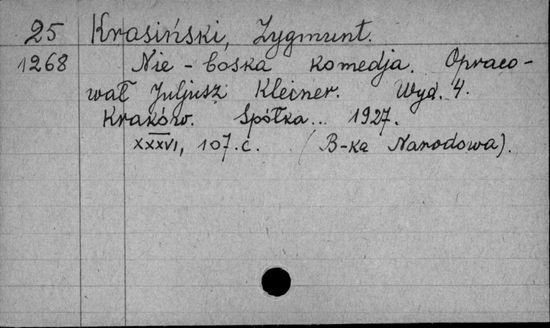 25 Krasiński, Zygmunt.
1268 Nie-boska komedja. Opraco-
wał Juljusz Kleiner. Wyd. 4.
Kraków. Spółka... 1927.
XXXVI, 107.с. (B-ka Narodowa).